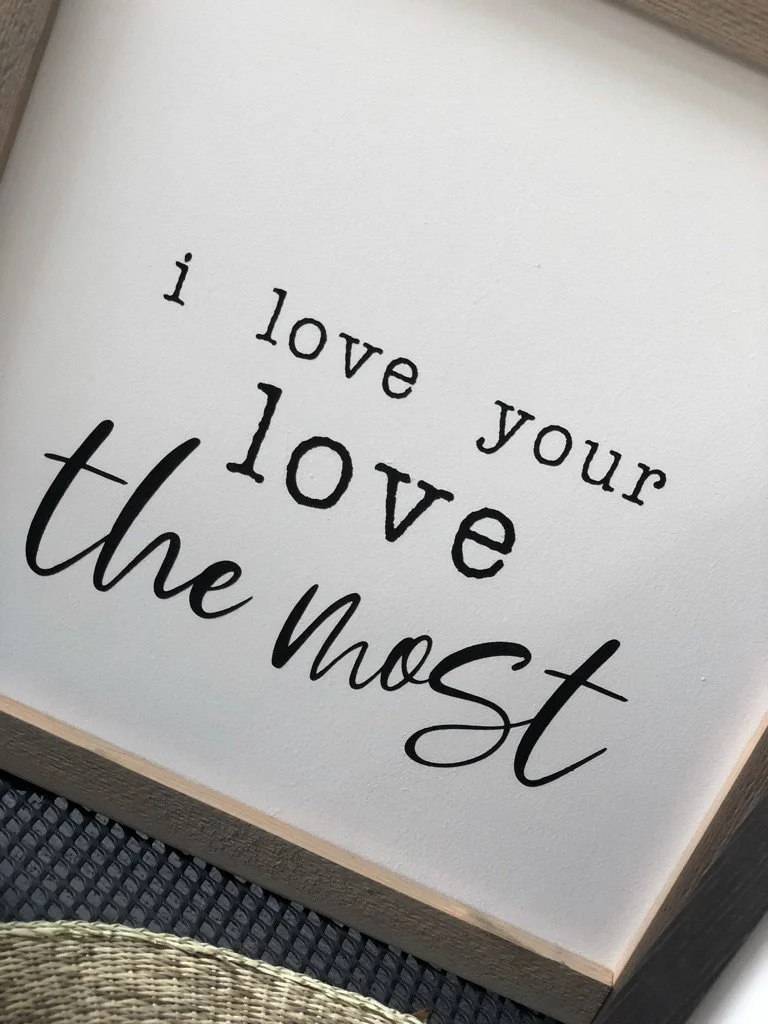 i love your
love
the most